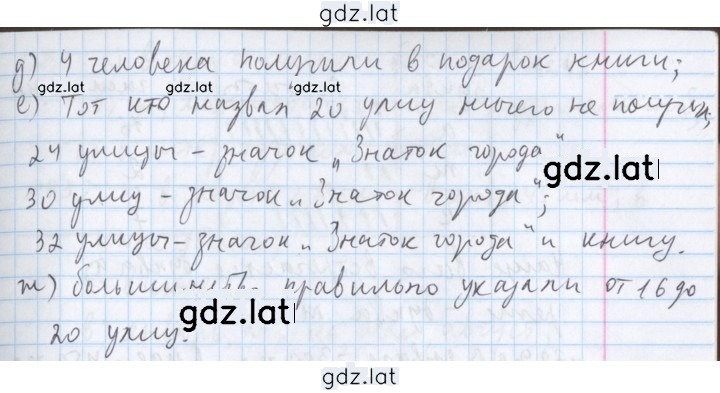 gdz.lat
д) 4 человека получили в подарок книги;
gdz.lat gdz.lat gdz.lat
е) Тот кто назвал 20 улиц ничего не получил;
24 улицы - значок „Знаток города"
gdz.lat
30 улиц - значок „Знаток города";
32 улицы - значок „Знаток города" и книгу.
ж) большинство правильно указали от 16 до
gdz.lat
20 улиц.
gdz.lat